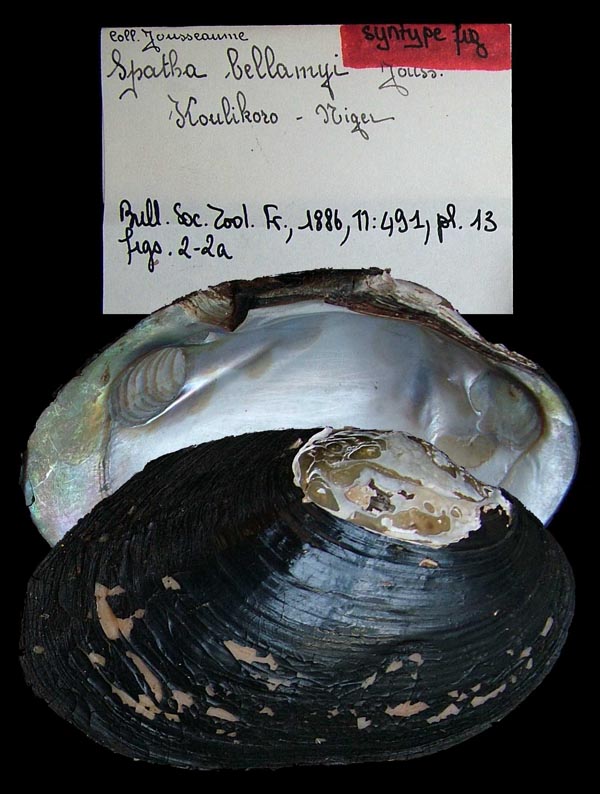 Coll. Jousseaume
syntype fig
Spatha bellamyi Jouss.
Koulikoro - Niger
Bull. Soc. Zool. Fr., 1886, 11:491, pl. 13
figs. 2-2a